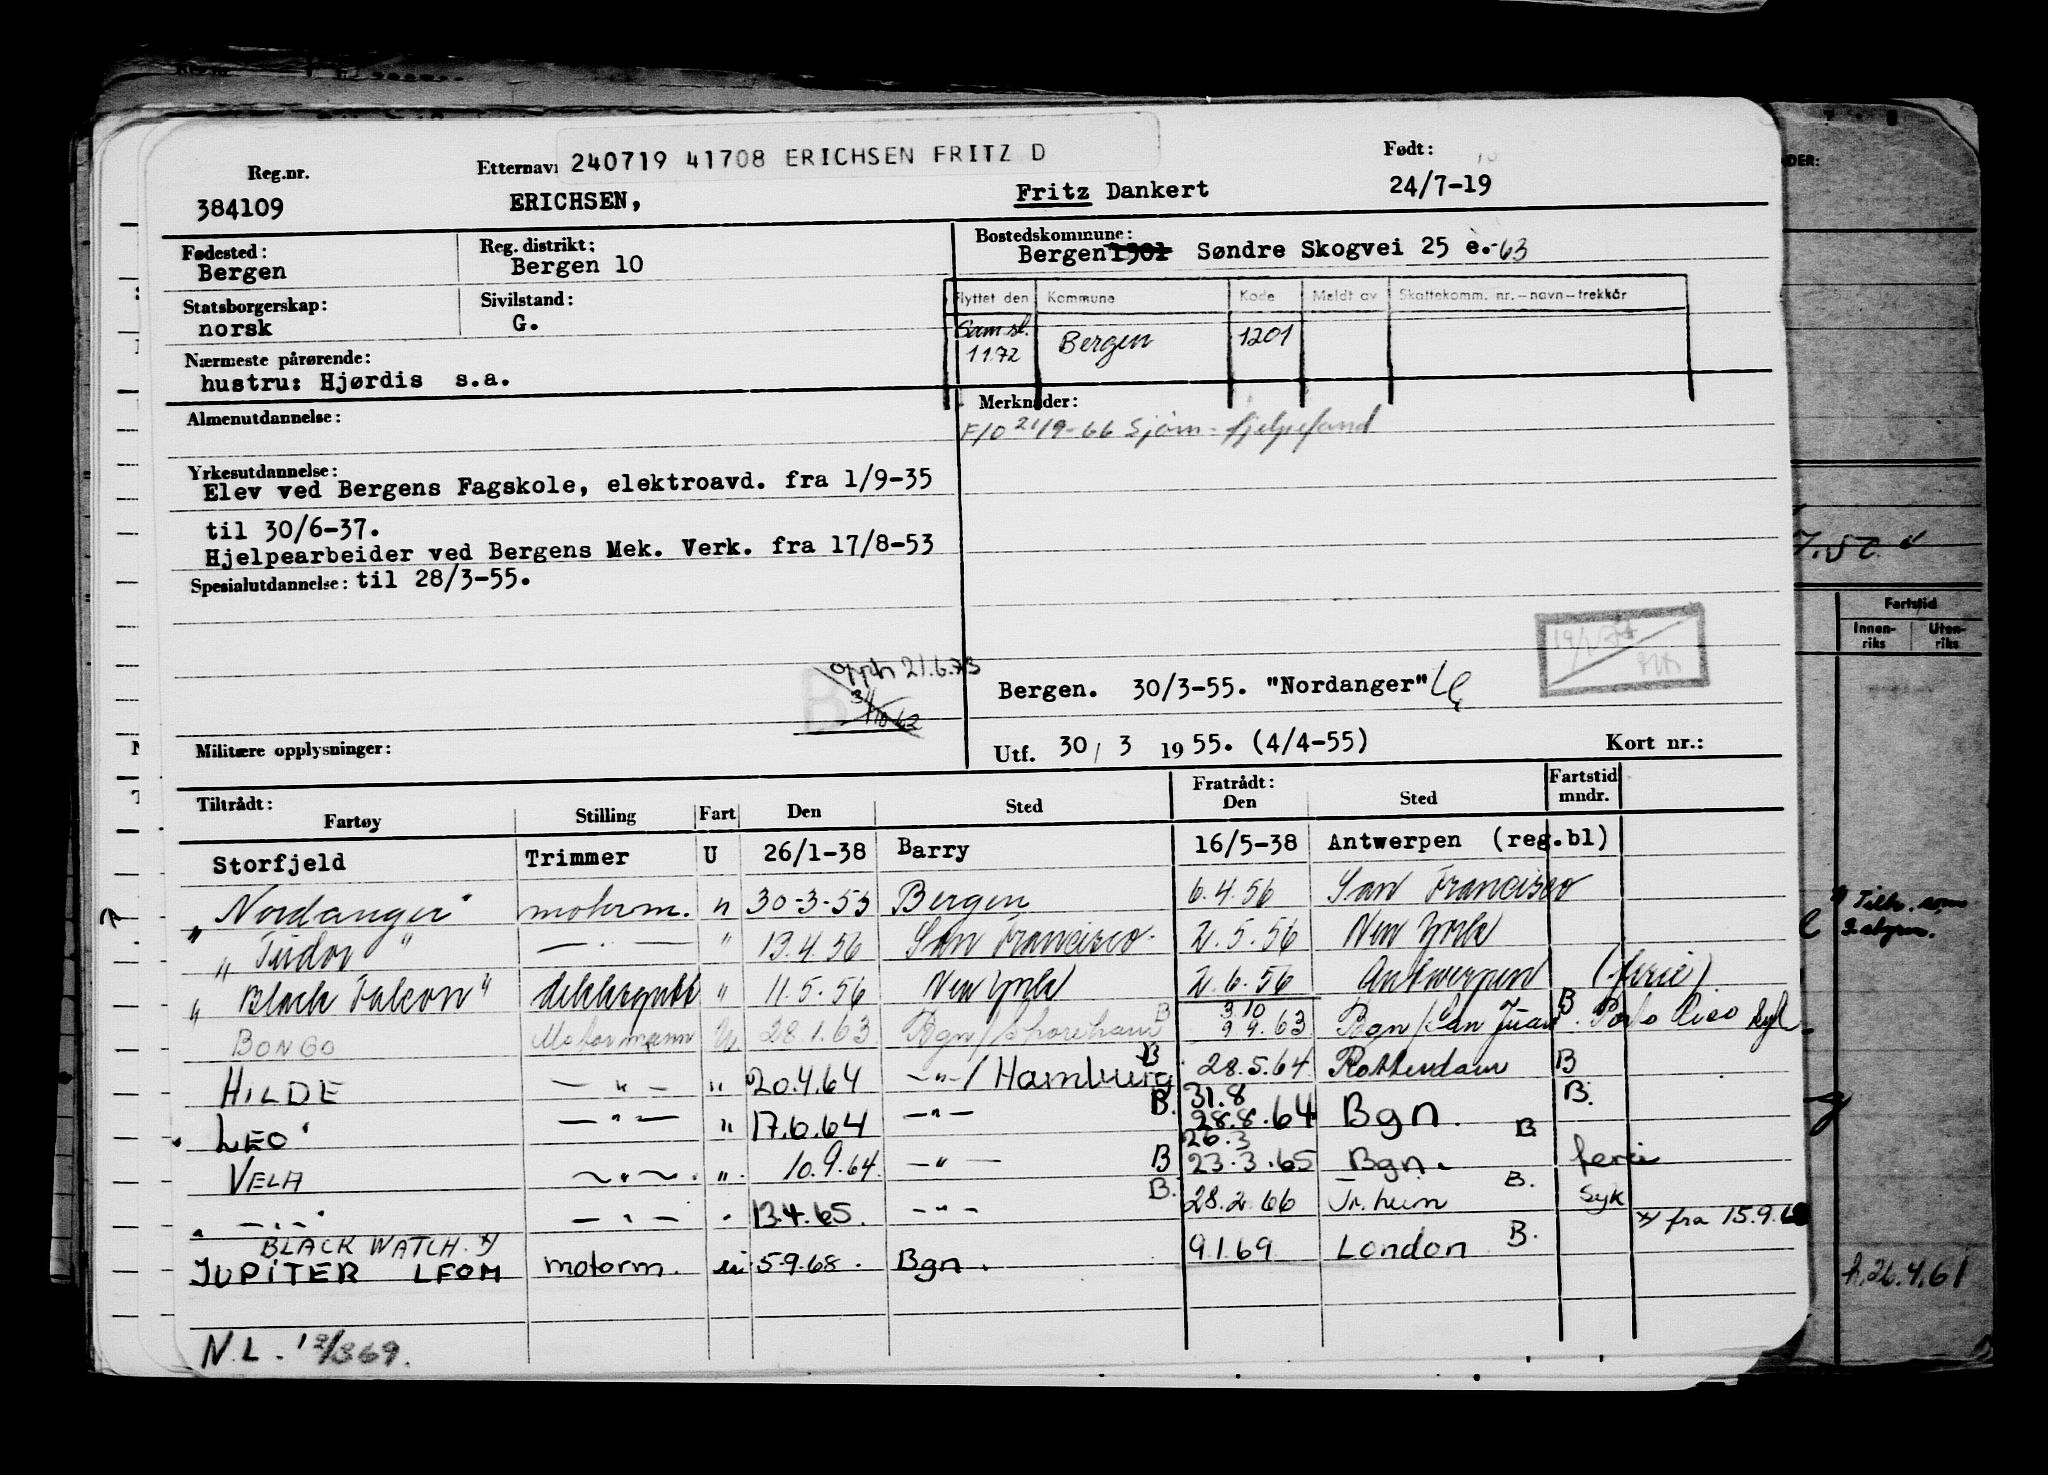 240719 41708 ERICHSEN FRITZ D
Reg.nr. Etternavn Født:
384109 ERICHSEN, Fritz Dankert 24/7-19
Fødested: Reg. distrikt: Bostedskommune:
Bergen Bergen 10 Bergen 1301 Søndre Skogvei 25 e.-63
Statsborgerskap: Sivilstand:
norsk G.
Flyttet den Kommune Kode Meldt av Skattekomm. nr.-navn-trekkår
Saml.
11.72 Bergen 1201
Nærmeste pårørende:
hustru: Hjørdis s.a.
Almenutdannelse: Merknader:
F/O 21/9-66 Sjøm-hjelpefond
Yrkesutdannelse:
Elev ved Bergens Fagskole, elektroavd. fra 1/9-35
til 30/6-37.
Hjelpearbeider ved Bergens Mek. Verk. fra 17/8-53
Spesialutdannelse: til 28/3-55.
opph 21.6.73
B 31/10 62
Bergen. 30/3-55. "Nordanger"
Militære opplysninger: Utf. 30/ 3 1955. (4/4-55) Kort nr.:
Tiltrådt: Fratrådt: Fartstid
Fartøy Stilling Fart Den Sted Den Sted mndr.
Storfjeld Trimmer U 26/1-38 Barry 16/5-38 Antwerpen (reg.bl)
"Nordanger" motorm. " 30-3-55 Bergen 6.4.56 San Francisco
"Tudor" — . — " 13.4.56 San Francisco 2.5.56 New York
"Black Falcon" dekksgutt " 11.5.56 New York 2.6.56 Antwerpen (ferie)
BONGO Motormann U. 28.1.63 Bgn/Shoreham B 3.10 9.9.63 Bgn/San Juan B. Porto Rico syk
HILDE — " — " 20.4.64 —"—/Hamburg B 28.5.64 Rotterdam B
LEO — " — " 17.6.64 —"— B. 31.8 28.8.64 Bgn. B.
VELA — " — " 10.9.64 —"— B 26.3 23.3.65 Bgn. B ferie
— . — — " — " 13.4.65. —"— B. 28.2.66 Tr.heim B. syk
BLACK WATCH x) x) fra 15.9.68
JUPITER LEOM motorm. 5-9.68. Bgn. 9.1.69 London B.
N.L. 12/369.
7.50
Fartstid
Innen-riks Uten-riks
h.26.4.61